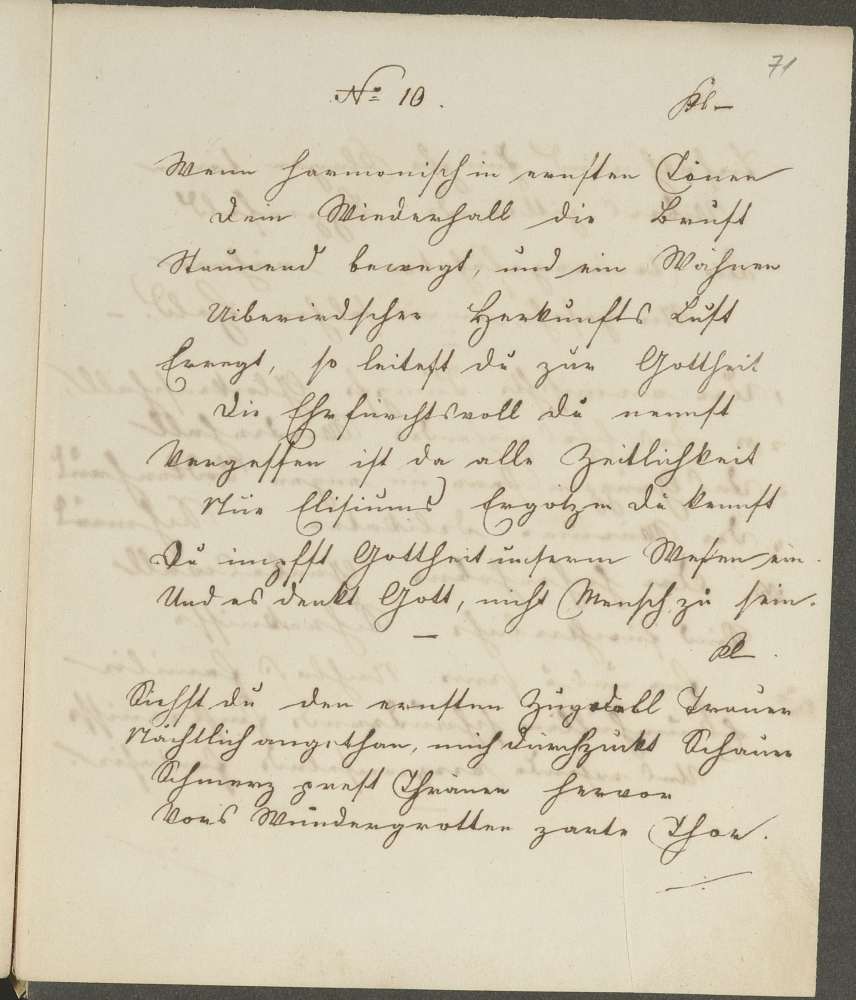 71
No 10.
Kl-
Wenn harmonisch in ernsten Tönen
Dein Wiederhall die Brust
Staunend bewegt, und ein Wähnen
Uiberirdscher Herkunfts Lust
Erregt, so leitest du zur Gottheit
Die Ehrfurchtsvoll du nennst
Vergessen ist da alle Zeitlichkeit
Nur Elisiums Ergötzen du kennst
Du impfst Gottheit unserm Wesen ein.
Und es denkt Gott, nicht Mensch zu sein.
Kl-
Siehst du den ernsten Zug all Trauer
Nächtlich angethan, mich durchzuckt Schauer
Schmerz prest Thränen hervor
Vors Wundergrotten zarte Thor.